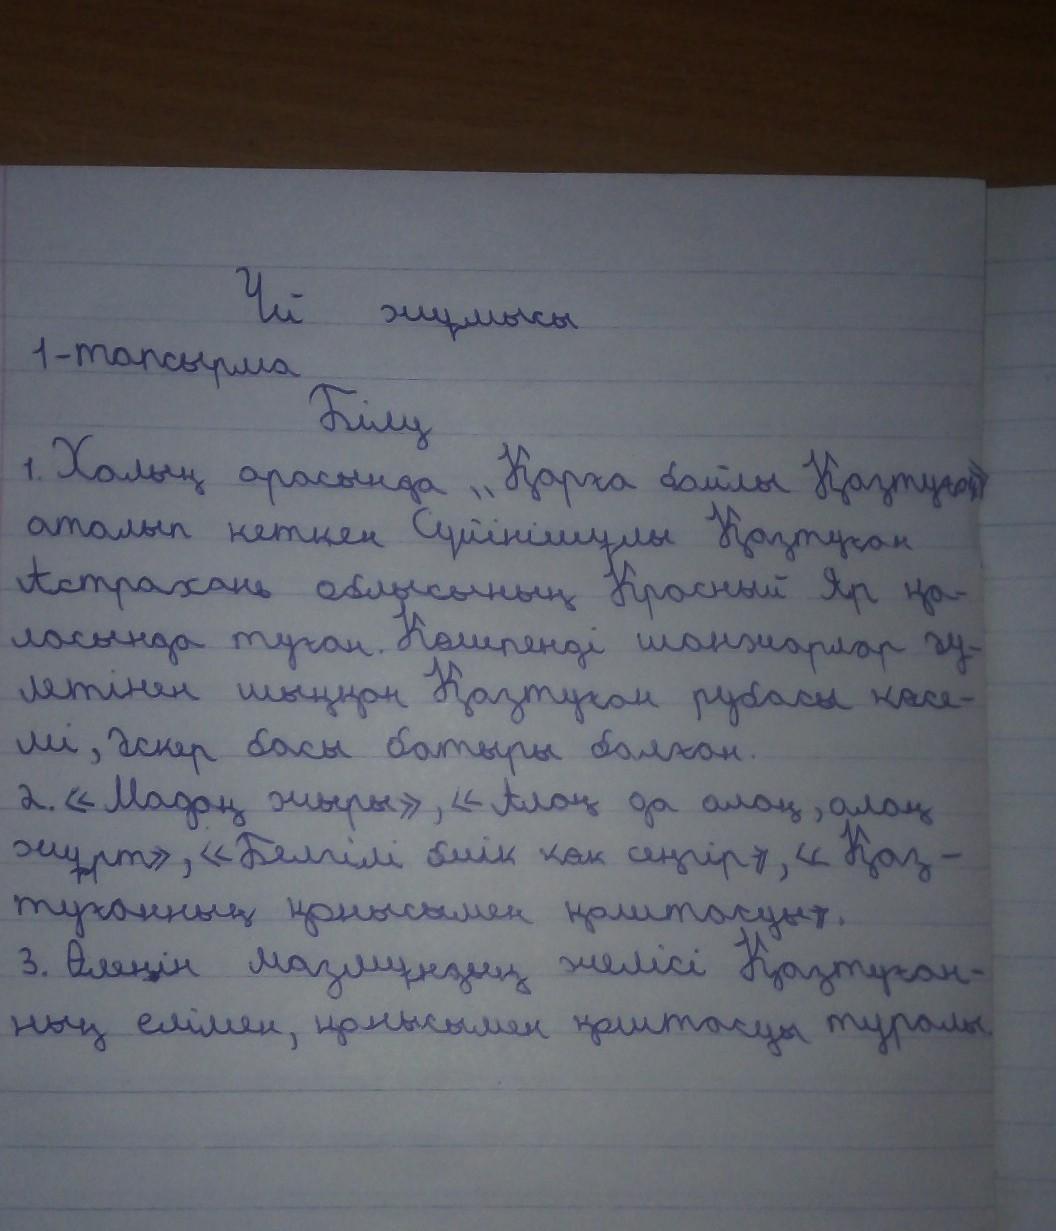 Үй жұмысы
1-тапсырма
Білу
1. Халық арасында „Қарға бойлы Қазтуған"
аталып кеткен Сүйінішұлы Қазтуған
Астрахань облысының Красный Яр қа-
ласында туған. Көшпенді шонжарлар әу-
летінен шыққан Қазтуған рубасы көсе-
мі, әскер басы батыры болған.
2. «Мадақ жыры», «Алаң да алаң, алаң
жұрт», «Белгілі биік көк сеңгір», «Қаз-
туғанның қонысымен қоштасуы».
3. Өлеңнін мазмұндық желісі Қазтуған-
ның елімен, қонысымен қоштасуы туралы.